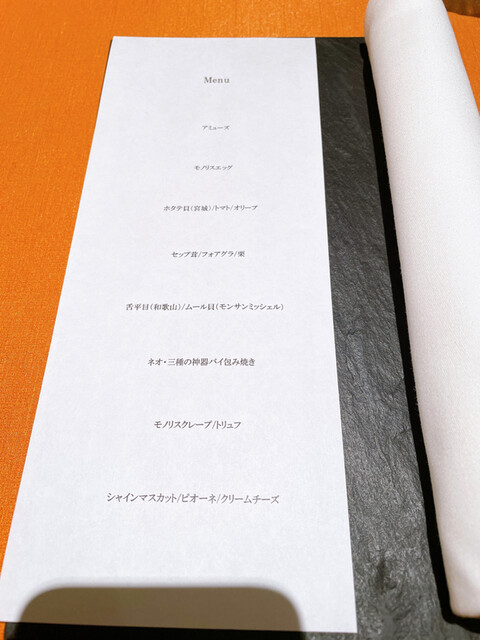 Menu
アミューズ
モノリスエッグ
ホタテ貝(宮城)/トマト/オリーブ
セップ茸/フォアグラ/栗
舌平目(和歌山)/ムール貝(モンサンミッシェル)
ネオ・三種の神器パイ包み焼き
モノリスクレープ/トリュフ
シャインマスカット/ピオーネ/クリームチーズ